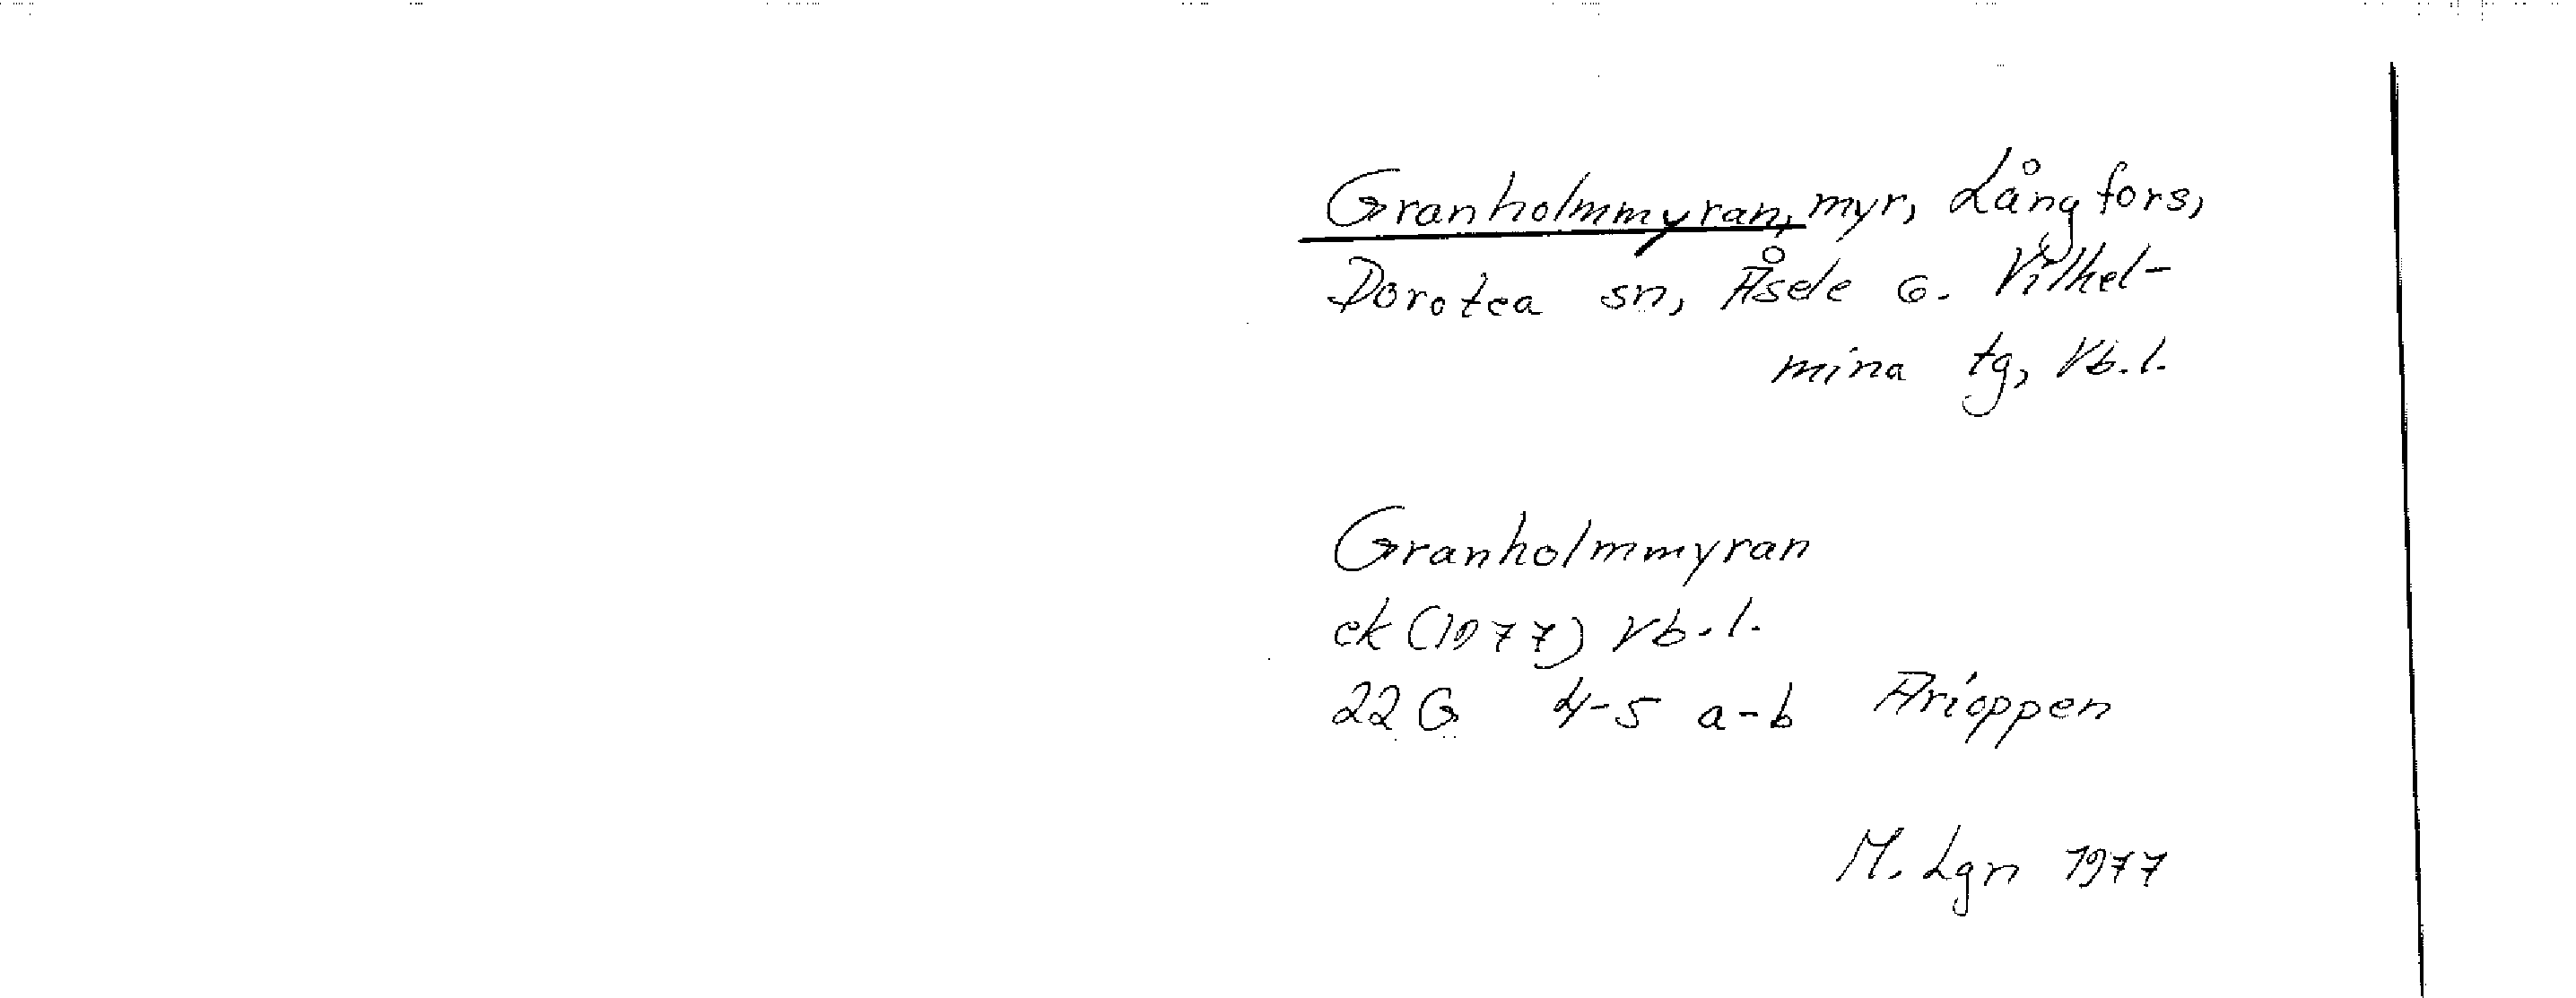 Granholmmyran, myr, Långfors,
Dorotea sn, Åsele o. Vilhel-
mina tg, Vb.l.
Granholmmyran
ek (1977) Vb.l.
22 G 4-5 a-b Arioppen
M. Lgn 1977